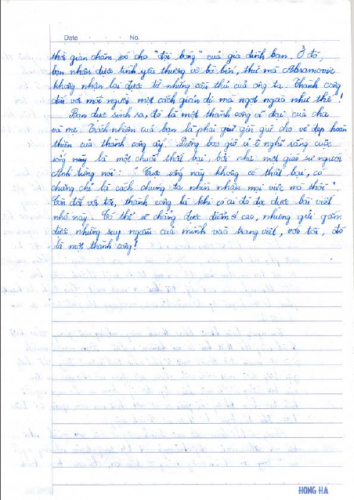 Date No
thời gian chăm sóc cho "đội bóng" của gia đình bạn. Ở đó,
bạn nhận được tình yêu thương vô bờ bến, thứ mà Abramovic
không nhận lại được từ những cầu thủ của ông ta. Thành công
đối với mỗi người một cách giản dị mà ngọt ngào như thế!
Bạn được sinh ra, đó là một thành công vĩ đại của cha
và mẹ. Trách nhiệm của bạn là phải giữ gìn cho vẻ đẹp hoàn
thiện của thành công ấy. Đừng bao giờ ủ ê nghĩ rằng cuộc
sống này là một chuỗi thất bại, bởi như một giáo sư người
Anh từng nói: "Cuộc sống này không có thất bại, có
chăng chỉ là cách chúng ta nhìn nhận mọi việc mà thôi."
Còn đối với tôi, thành công là khi có ai đó đọc được bài viết
nhỏ này. Có thể sẽ chẳng được điểm số cao, nhưng gửi gắm
được những suy ngẫm của mình vào trang viết, với tôi, đó
là một thành công!
HONG HA